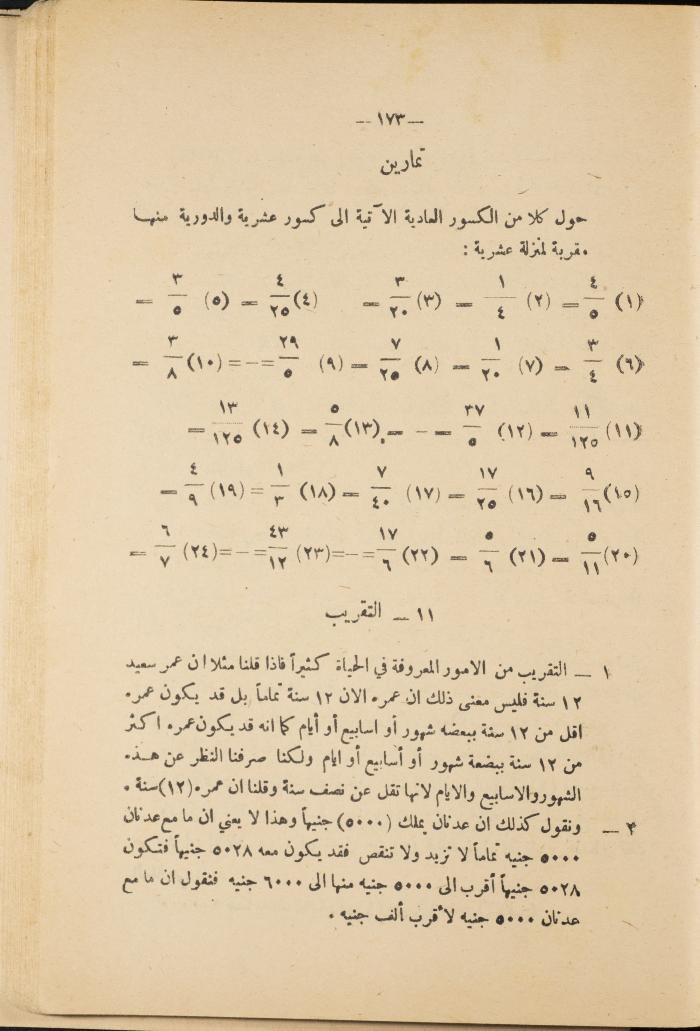 — ١٧٣ —
تمارين
حول كلا من الكسور العادية الآتية الى كسور عشرية والدورية منهـا
مقربة لمنزلة عشرية :
(١) ٤/٥ = (٢) ١/٤ = (٣) ٣/٢٠ = (٤) ٤/٢٥ = (٥) ٣/٥ =
(٦) ٣/٤ = (٧) ١/٢٠ = (٨) ٧/٢٥ = (٩) ٢٩/٥ =–= (١٠) ٣/٨ =
(١١) ١١/١٢٥ = (١٢) ٣٧/٥ = – = (١٣) ٥/٨ = (١٤) ١٣/١٢٥ =
(١٥) ٩/١٦ = (١٦) ١٧/٢٥ = (١٧) ٧/٤٠ = (١٨) ١/٣ = (١٩) ٤/٩ =
(٢٠) ٥/١١ = (٢١) ٥/٦ = (٢٢) ١٧/٦ =–= (٢٣) ٤٣/١٢ =–= (٢٤) ٦/٧ =
١١ — التقريب
١ — التقريب من الامور المعروفة في الحياة كثيراً فاذا قلنا مثلا ان عمر سعيد
١٢ سنة فليس معنى ذلك ان عمره الان ١٢ سنة تماماً بل قد يكون عمره
اقل من ١٢ سنة ببعضه شهور أو اسابيع أو أيام كما انه قد يكون عمره اكثر
من ١٢ سنة ببضعة شهور أو أسابيع أو ايام ولكنا صرفنا النظر عن هـذه
الشهور والاسابيع والايام لانها تقل عن نصف سنة وقلنا ان عمره (١٢) سنة .
٢ — ونقول كذلك ان عدنان يملك (٥٠٠٠) جنيهاً وهذا لا يعني ان ما مع عدنان
٥٠٠٠ جنيه تماماً لا تزيد ولا تنقص فقد يكون معه ٥٠٢٨ جنيهاً فتكون
٥٠٢٨ جنيهاً أقرب الى ٥٠٠٠ جنيه منها الى ٦٠٠٠ جنيه فنقول ان ما مع
عدنان ٥٠٠٠ جنيه لأقرب ألف جنيه .